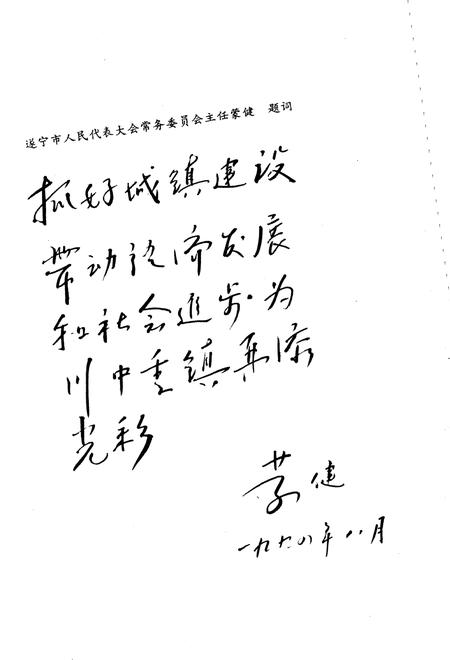 遂宁市人民代表大会常务委员会主任蒙健 题词
抓好城鎮建设
带动经济发展
和社会進步·为
川中重镇再添
光彩
蒙健
一九九八年八月